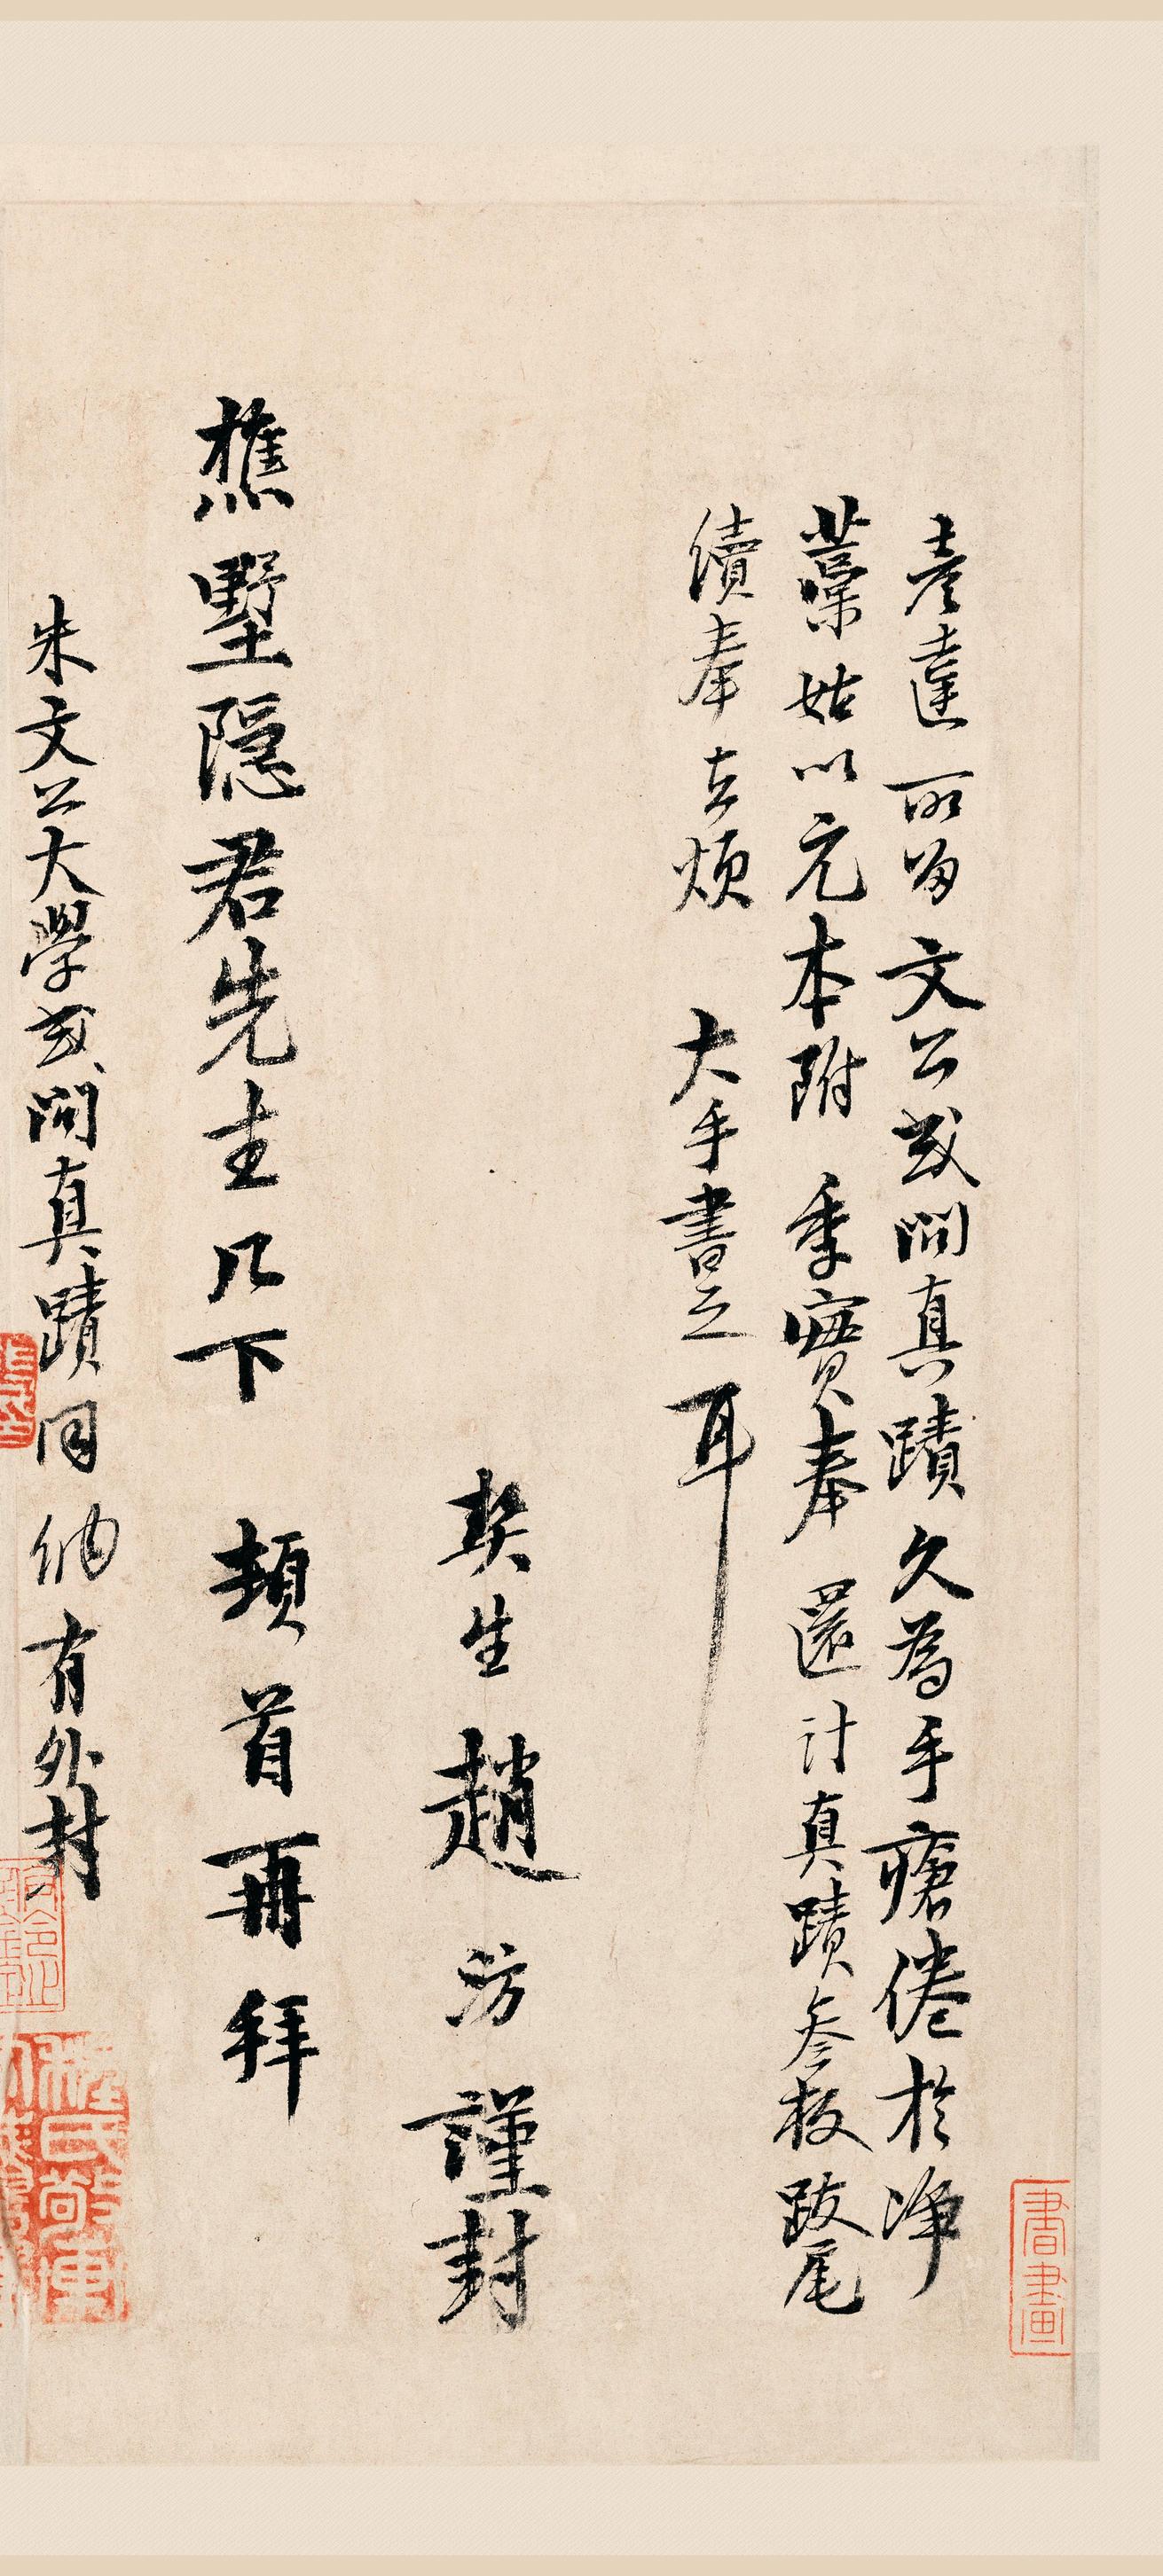 彥達所留文公或問真蹟久為手瘡倦於淨
藁姑以元本附季實奉還計真蹟叁板跋尾
續奉去煩大手書之耳
契生趙汸謹封
樵墅隱君先生几下頓首再拜
朱文公大學或問真蹟同納有外封
書畫